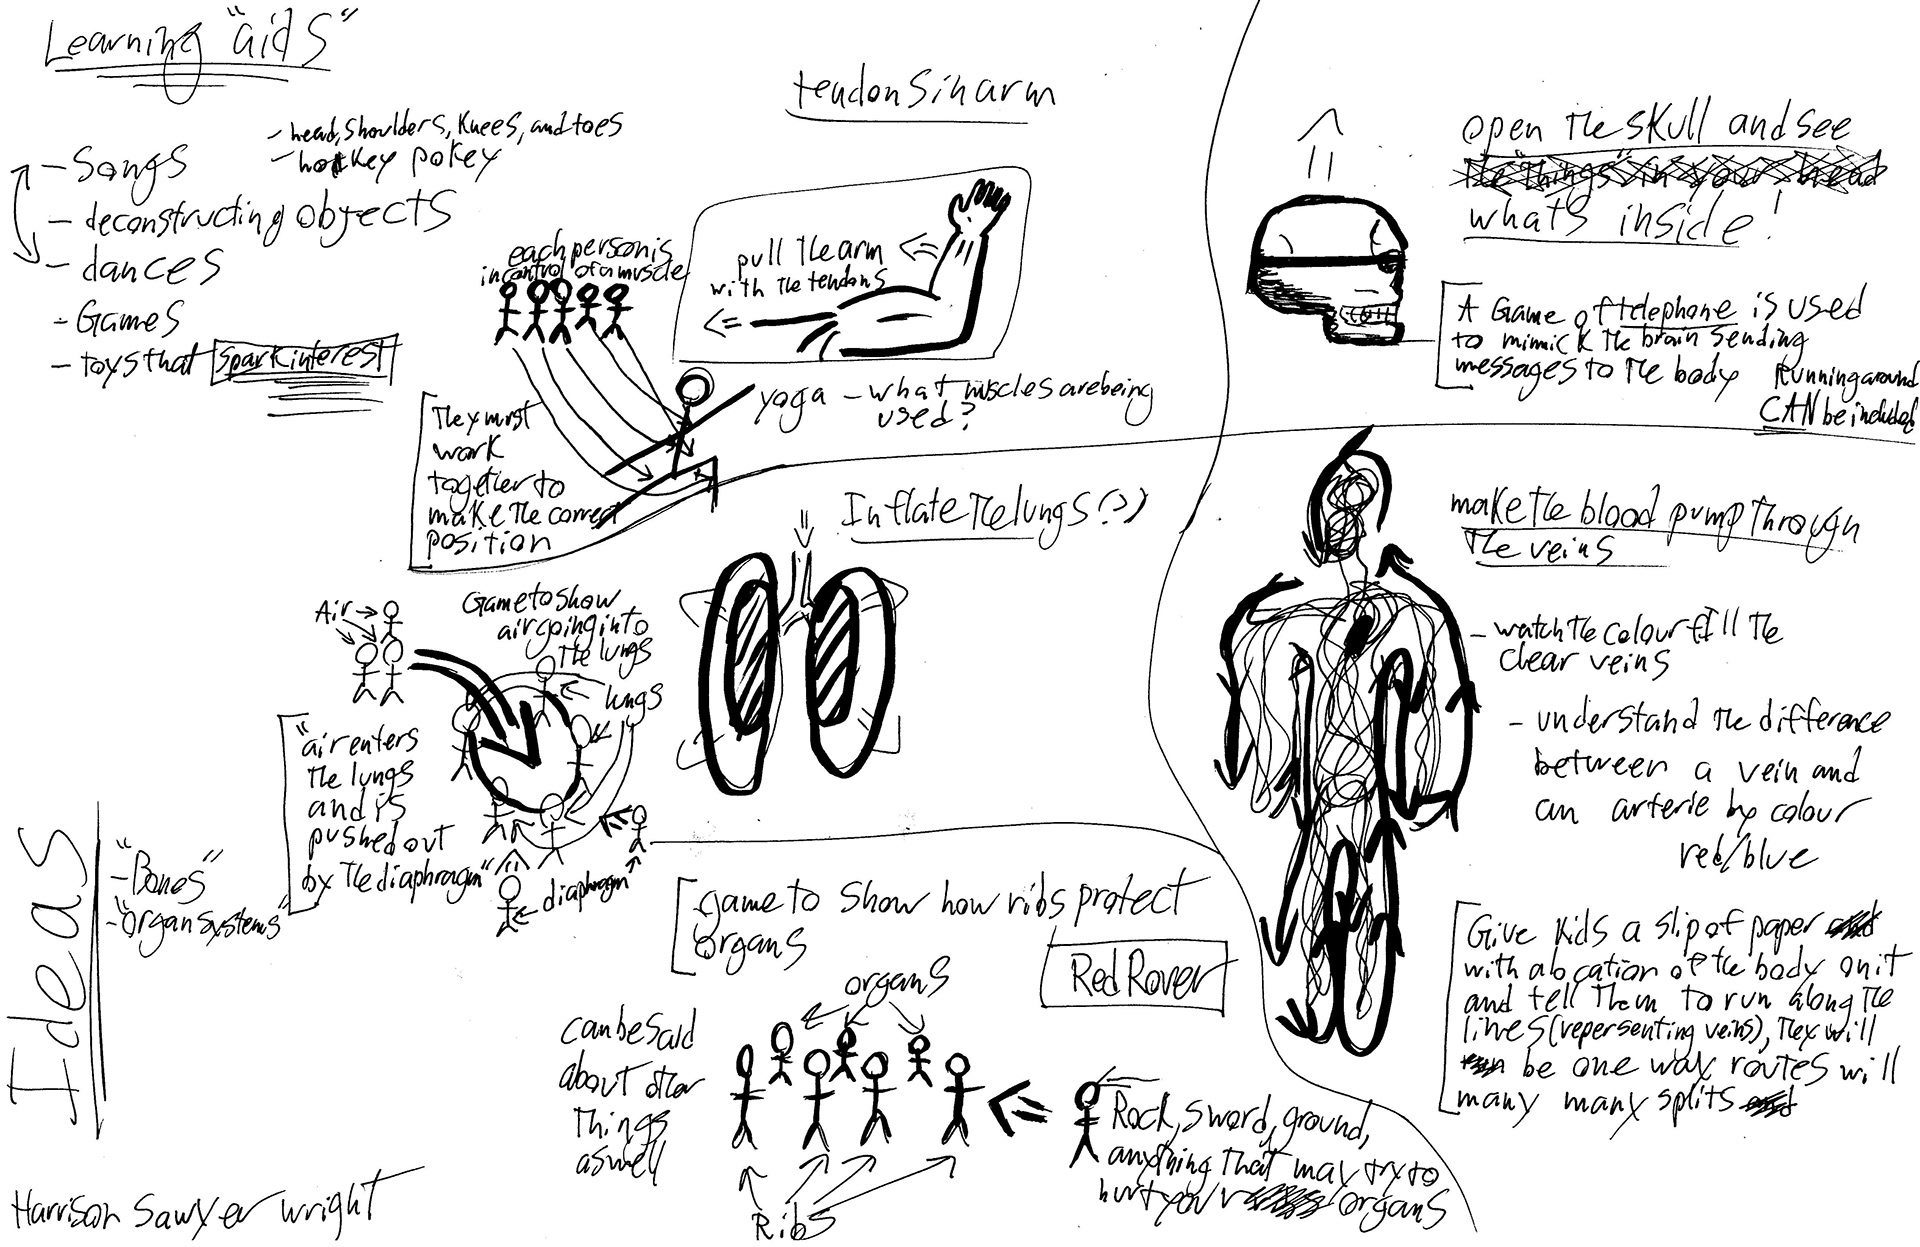 Learning "aids"
- Songs
- head, shoulders, knees, and toes
- hokey pokey
- deconstructing objects
- dances
- Games
- toys that spark interest
tendons in arm
each person is
in control of a muscle
pull the arm
with the tendons
They must
work
together to
make the correct
position
yoga - what muscles are being
used?
open the skull and see
the "things" in your head
whats inside!
A Game of telephone is used
to mimick the brain sending
messages to the body
Running around
CAN be included
Inflate the lungs (?)
Air
Game to show
air going into
the lungs
lungs
"air enters
the lungs
and is
pushed out
by the diaphragm"
diaphragm
make the blood pump through
the veins
- watch the colour fill the
clear veins
- understand the difference
between a vein and
an arterie by colour
red/blue
Give kids a slip of paper
with a location of the body on it
and tell them to run along the
lines (repersenting veins), they will
be one way routes will
many many splits
Ideas
- "Bones"
- "organ systems"
game to show how ribs protect
organs
Red Rover
organs
can be said
about other
things
as well
Ribs
Rock, sword, ground,
anything that may try to
hurt your organs
Harrison Sawyer wright